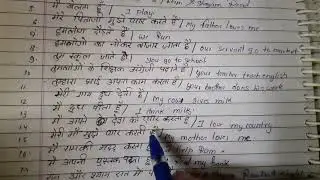 मैं खेलता हूँ | I play
5. मेरे पिताजी मुझे प्यार करते हैं | My father loves me
6. हमलोग दौड़ते हैं | we Run
7. हमलोगों का नौकर बाजार जाता है | Our servant go to market
8. तुम स्कूल जाते हो | You go to school
9. तुमलोगों के शिक्षक अंग्रेजी पढ़ाते हैं | Your teacher teach english
10. तुम्हारा भाई अपना काम करता है | Your brother does his work
11. मेरी गाय दूध देती है | My cow gives milk
12. मैं दूध पीता हूँ | I drink milk
13. मैं अपने देश को प्यार करता हूँ | I love my country
14. मेरी माँ मुझे प्यार करती है | mother loves me
15. मैं राम की मदद करता help Ram
16. मैं अपनी पुस्तक my book